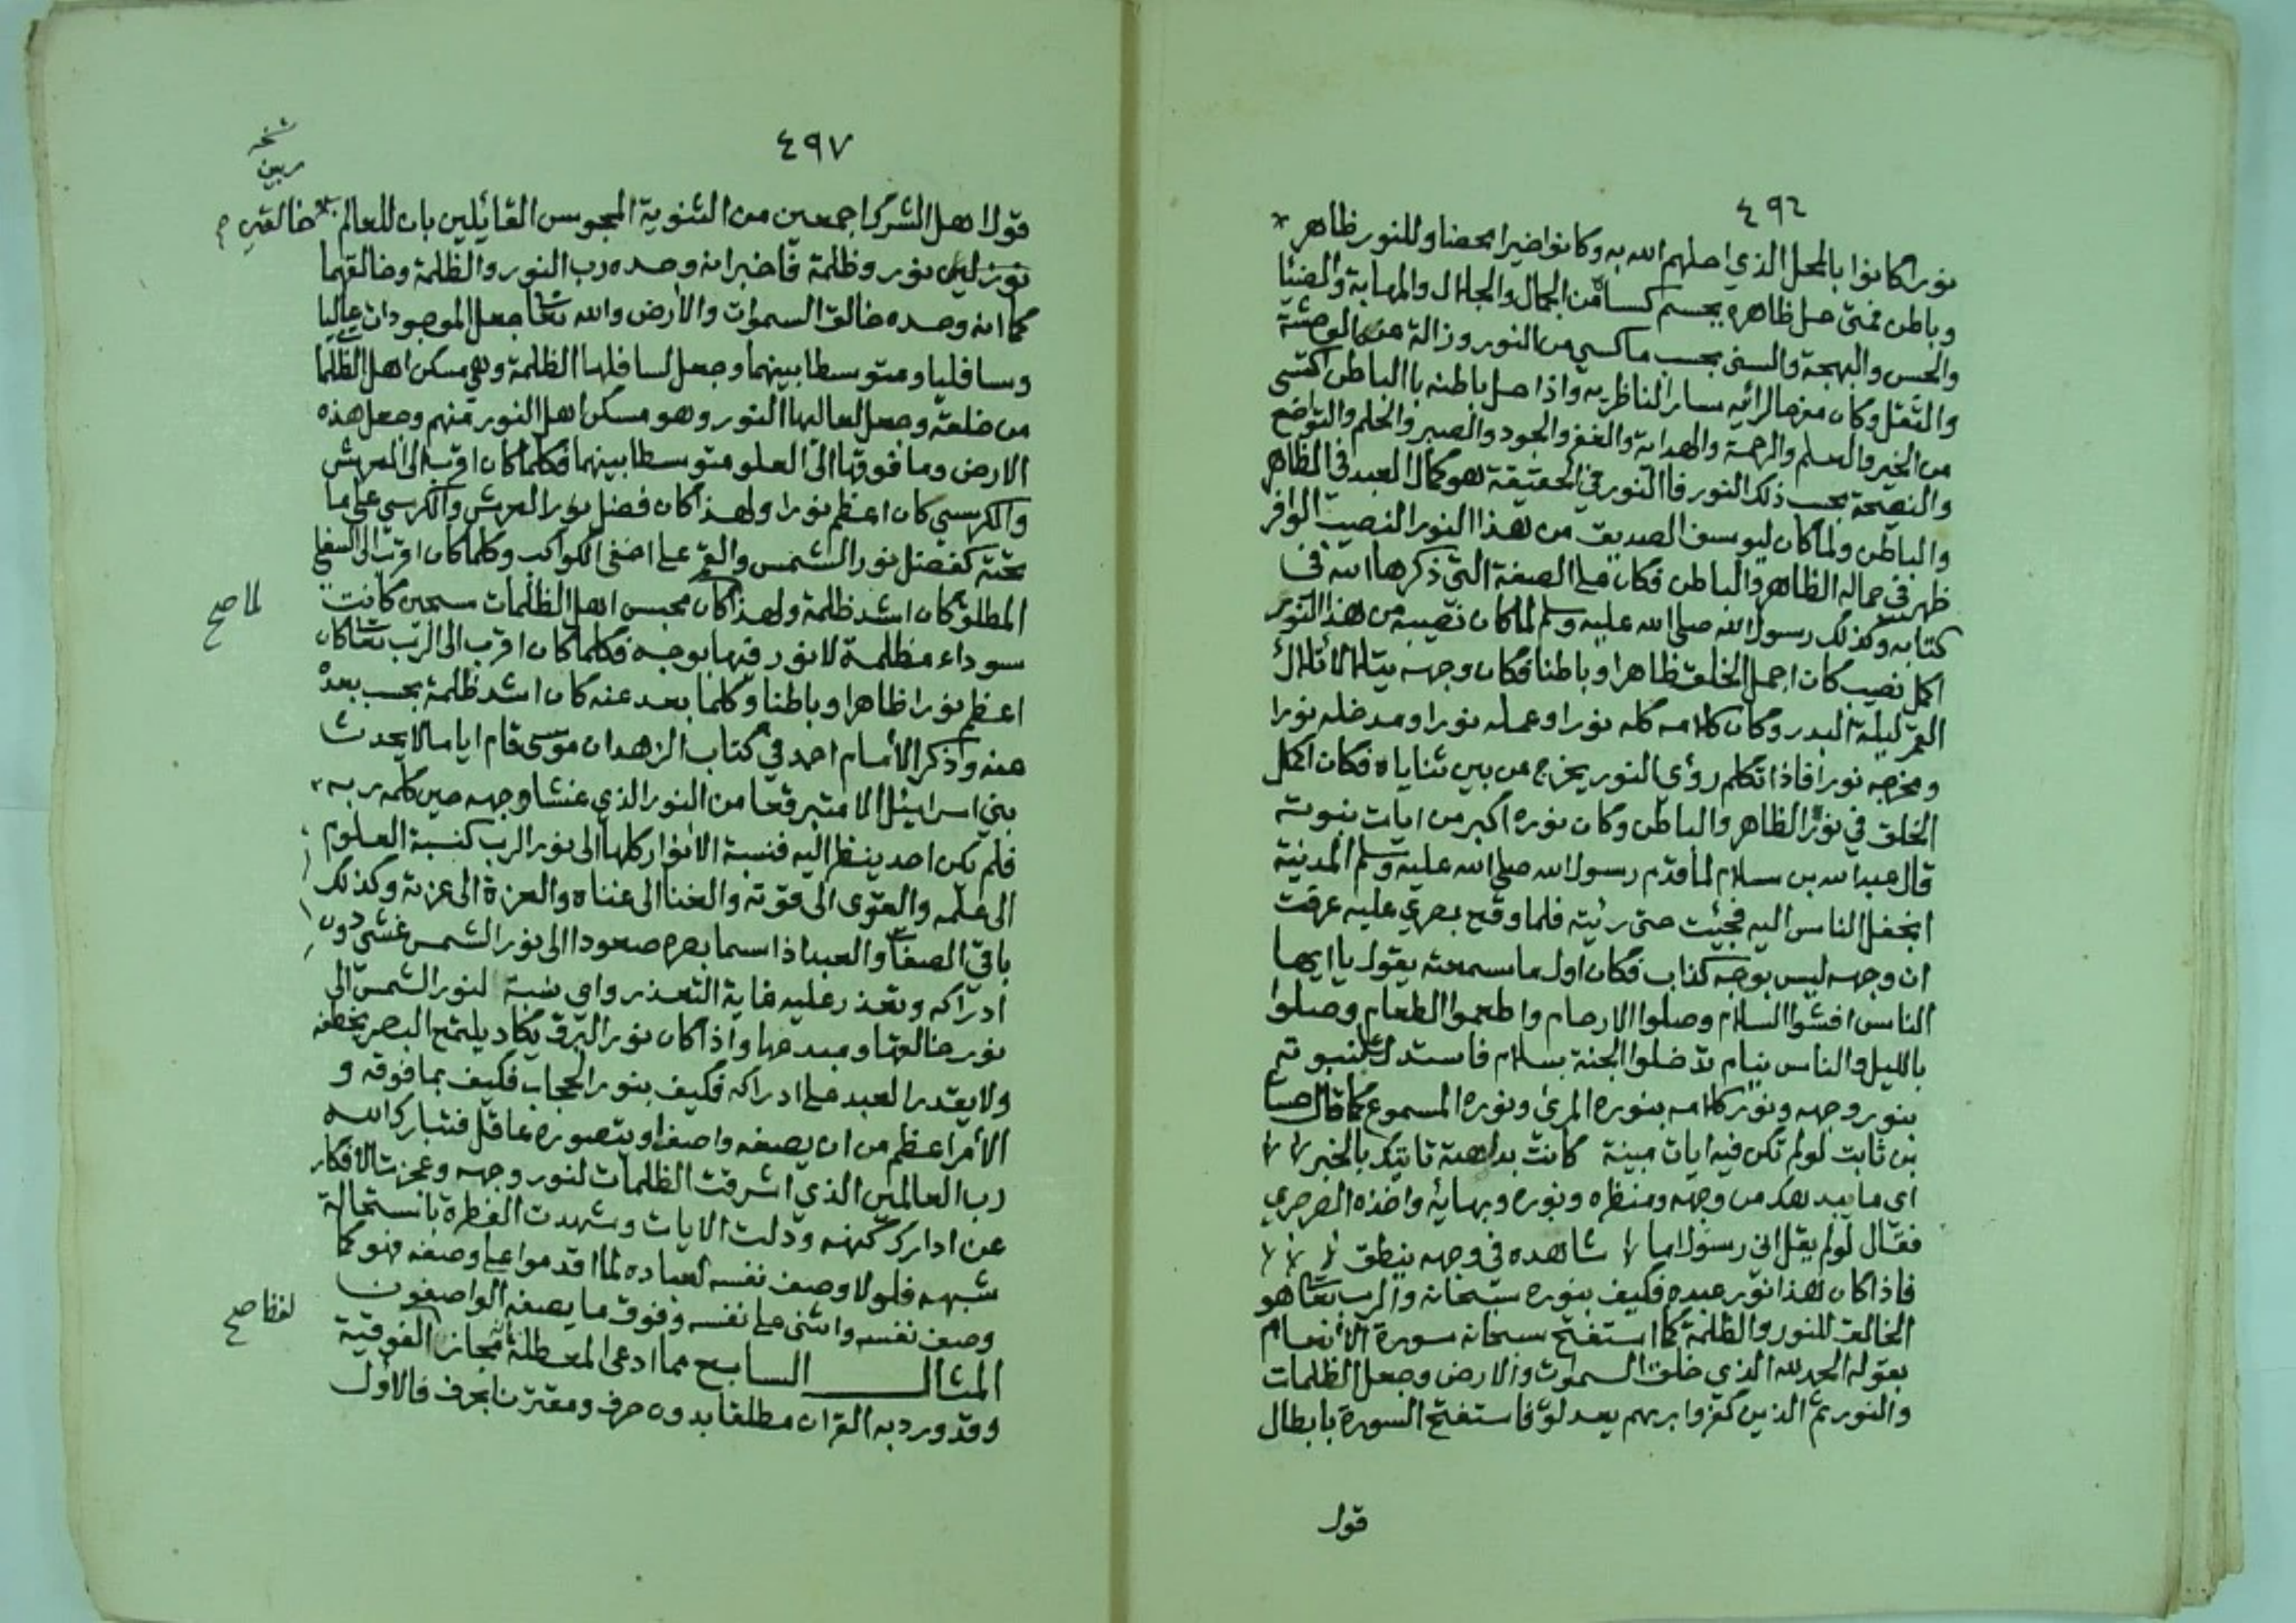 ٤٩٦
نورا كانوا بالمحل الذي احلهم الله به وكانوا خيرا محضا وللنور ظاهر
وباطن فمتى حل ظاهره بجسم كساه من الجمال والجلال والمهابة والضيا
والحسن والبهجة والسنى بحسب ما كسي من النور وزالة عنه الوحشة
والثقل وكان مفرحا لرائيه سارا لناظريه واذا حل باطنه باالباطن اكتسى
من الخير والعلم والرحمة والهداية والعفو والجود والصبر والحلم والتواضع
والنصيحة بحسب ذلك النور فاالنور في الحقيقة هو كمال العبد في الظاهر
والباطن ولما كان ليوسف الصديق من هذا النور النصيب الوافر
ظهر في جماله الظاهر والباطن فكان على الصفة التي ذكرها الله في
كتابه وكذلك رسول الله صلى الله عليه وسلم لما كان نصيبه من هذا النور
اكمل نصيب كان اجمل الخلق ظاهرا وباطنا فكان وجهه يتلألأ تلألأ
القمر ليلة البدر وكان كلامه كله نورا وعمله نورا ومدخله نورا
ومخرجه نورا فاذا تكلم رؤي النور يخرج من بين ثناياه فكان اكمل
الخلق في نور الظاهر والباطن وكان نوره اكبر من ايات نبوته
قال عبد الله بن سلام لما قدم رسول الله صلى الله عليه وسلم المدينة
انجفل الناس اليه فجئت حتى رئيته فلما وقع بصري عليه عرفت
ان وجهه ليس بوجه كذاب فكان اول ما سمعته يقول يا ايها
الناس افشوا السلام وصلوا الارحام واطعموا الطعام وصلوا
بالليل والناس نيام تدخلوا الجنة بسلام فاستدل على نبوته
بنور وجهه ونور كلامه بنوره المرئ ونوره المسموع كما قال حسان
بن ثابت لو لم تكن فيه ايات مبينة كانت بداهته تأتيك بالخبر
اي ما يبدهك من وجهه ومنظره ونوره وبهايه واخذه الصرصري
فقال لو لم يقل اني رسول اما شاهده في وجهه ينطق
فاذا كان هذا نور عبده فكيف بنوره سبحانه والرب تعالى هو
الخالق للنور والظلمة كما استفتح سبحانه سورة الأنعام
بقوله الحمد لله الذي خلق السموات والارض وجعل الظلمات
والنور ثم الذين كفروا بربهم يعدلون فاستفتح السورة بابطال
قول
٤٩٧
نسخه
ربين
قول اهل الشرك اجمعين من الثنوية المجوس القائلين بان للعالم خالقين
نورليى نور وظلمة فاخبر انه وحده رب النور والظلمة وخالقهما
كما انه وحده خالق السموات والأرض والله تعالى جعل الموجودات عاليا
وسافليا ومتوسطا بينهما وجعل لسافلها الظلمة وهي مسكن اهل الظلما
من خلقه وجعل لعاليها النور وهو مسكن اهل النور منهم وجعل هذه
الارض وما فوقها الى العلو متوسطا بينهما فكلما كان اقرب الى العرش
والكرسي كان اعظم نورا ولهذا كان فضل نور العرش والكرسي على ما
تحته كفضل نور الشمس والقمر على اخفى الكواكب وكلما كان اقرب الى السفل
المطلق كان اشد ظلمة ولهذا كان محبس اهل الظلمات سجين كانت
لما صح
سوداء مظلمة لا نور فيها بوجه فكلما كان اقرب الى الرب تعالى كان
اعظم نورا ظاهرا وباطنا وكلما بعد عنه كان اشد ظلمة بحسب بعده
عنه وذكر الأمام احمد في كتاب الزهد ان موسى قام اياما لا يحدث
بني اسرائيل الا متبرقعا من النور الذي غشا وجهه حين كلمه ربه
فلم يكن احد ينظر اليه فنسبة الانوار كلها الى نور الرب كنسبة العلوم
الى علمه والقوى الى قوته والغنا الى غناه والعزة الى عزته وكذلك
باقي الصفات والعبد اذا سما بصره صعودا الى نور الشمس غشي دون
ادراكه وتعذر عليه غاية التعذر واي نسبة لنور الشمس الى
نور خالقها ومبدعها واذا كان نور البرق يكاد يلتمع البصر يخطفه
ولا يقدر العبد على ادراكه فكيف بنور الحجاب فكيف بما فوقه و
الأمر اعظم من ان يصفه واصف او يتصوره عاقل فتبارك الله
رب العالمين الذي اشرقت الظلمات لنور وجهه وعجزت الافكار
عن ادارك كنهه ودلت الايات وشهدت الفطرة باستحالة
شبهه فلولا وصف نفسه لعباده لما اقدموا على وصفه فهو كما
وصف نفسه واثنى على نفسه وفوق ما يصفه الواصفون
المثال السابع مما ادعى المعطلة مجازه الفوقية
لفظا صح
وقد ورد به القران مطلقا بدون حرف ومقترنا بحرف فالأول